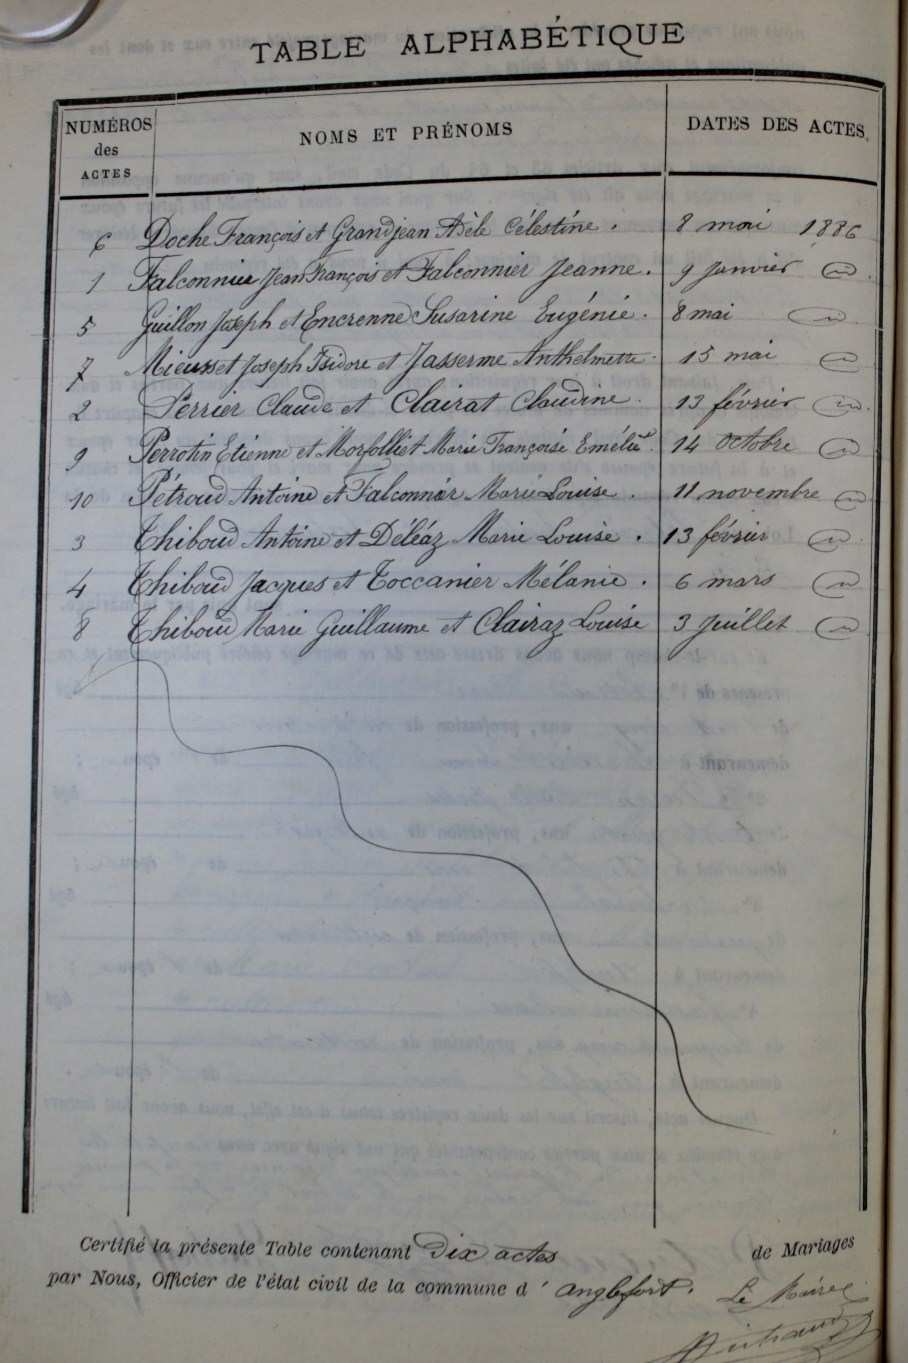 TABLE ALPHABÉTIQUE
NUMÉROS des ACTES NOMS ET PRÉNOMS DATES DES ACTES
6 Doche François et Grandjean Adèle Célestine. 8 mai 1886
1 Falconnier Jean François et Falconnier Jeanne. 9 Janvier
5 Guillon Joseph et Encrenne Susarine Eugénie. 8 mai
7 Mieusset Joseph Isidore et Jasserme Anthelmette. 15 mai
2 Perrier Claude et Clairat Claudine. 13 février
9 Perrotin Etienne et Morfolliet Marie Françoise 14 octobre
10 Pétroud Antoine et Falconnier Marie Louise. 11 novembre
3 Thiboud Antoine et Déléaz Marie Louise. 13 février
4 Thiboud Jacques et Toccanier Mélanie. 6 mars
8 Thiboud Marie Guillaume et Clairaz Louise 3 Juillet
Certifié la présente Table contenant Dix actes de Mariages
par Nous, Officier de l'état civil de la commune d'Anglefort.
Le Maire